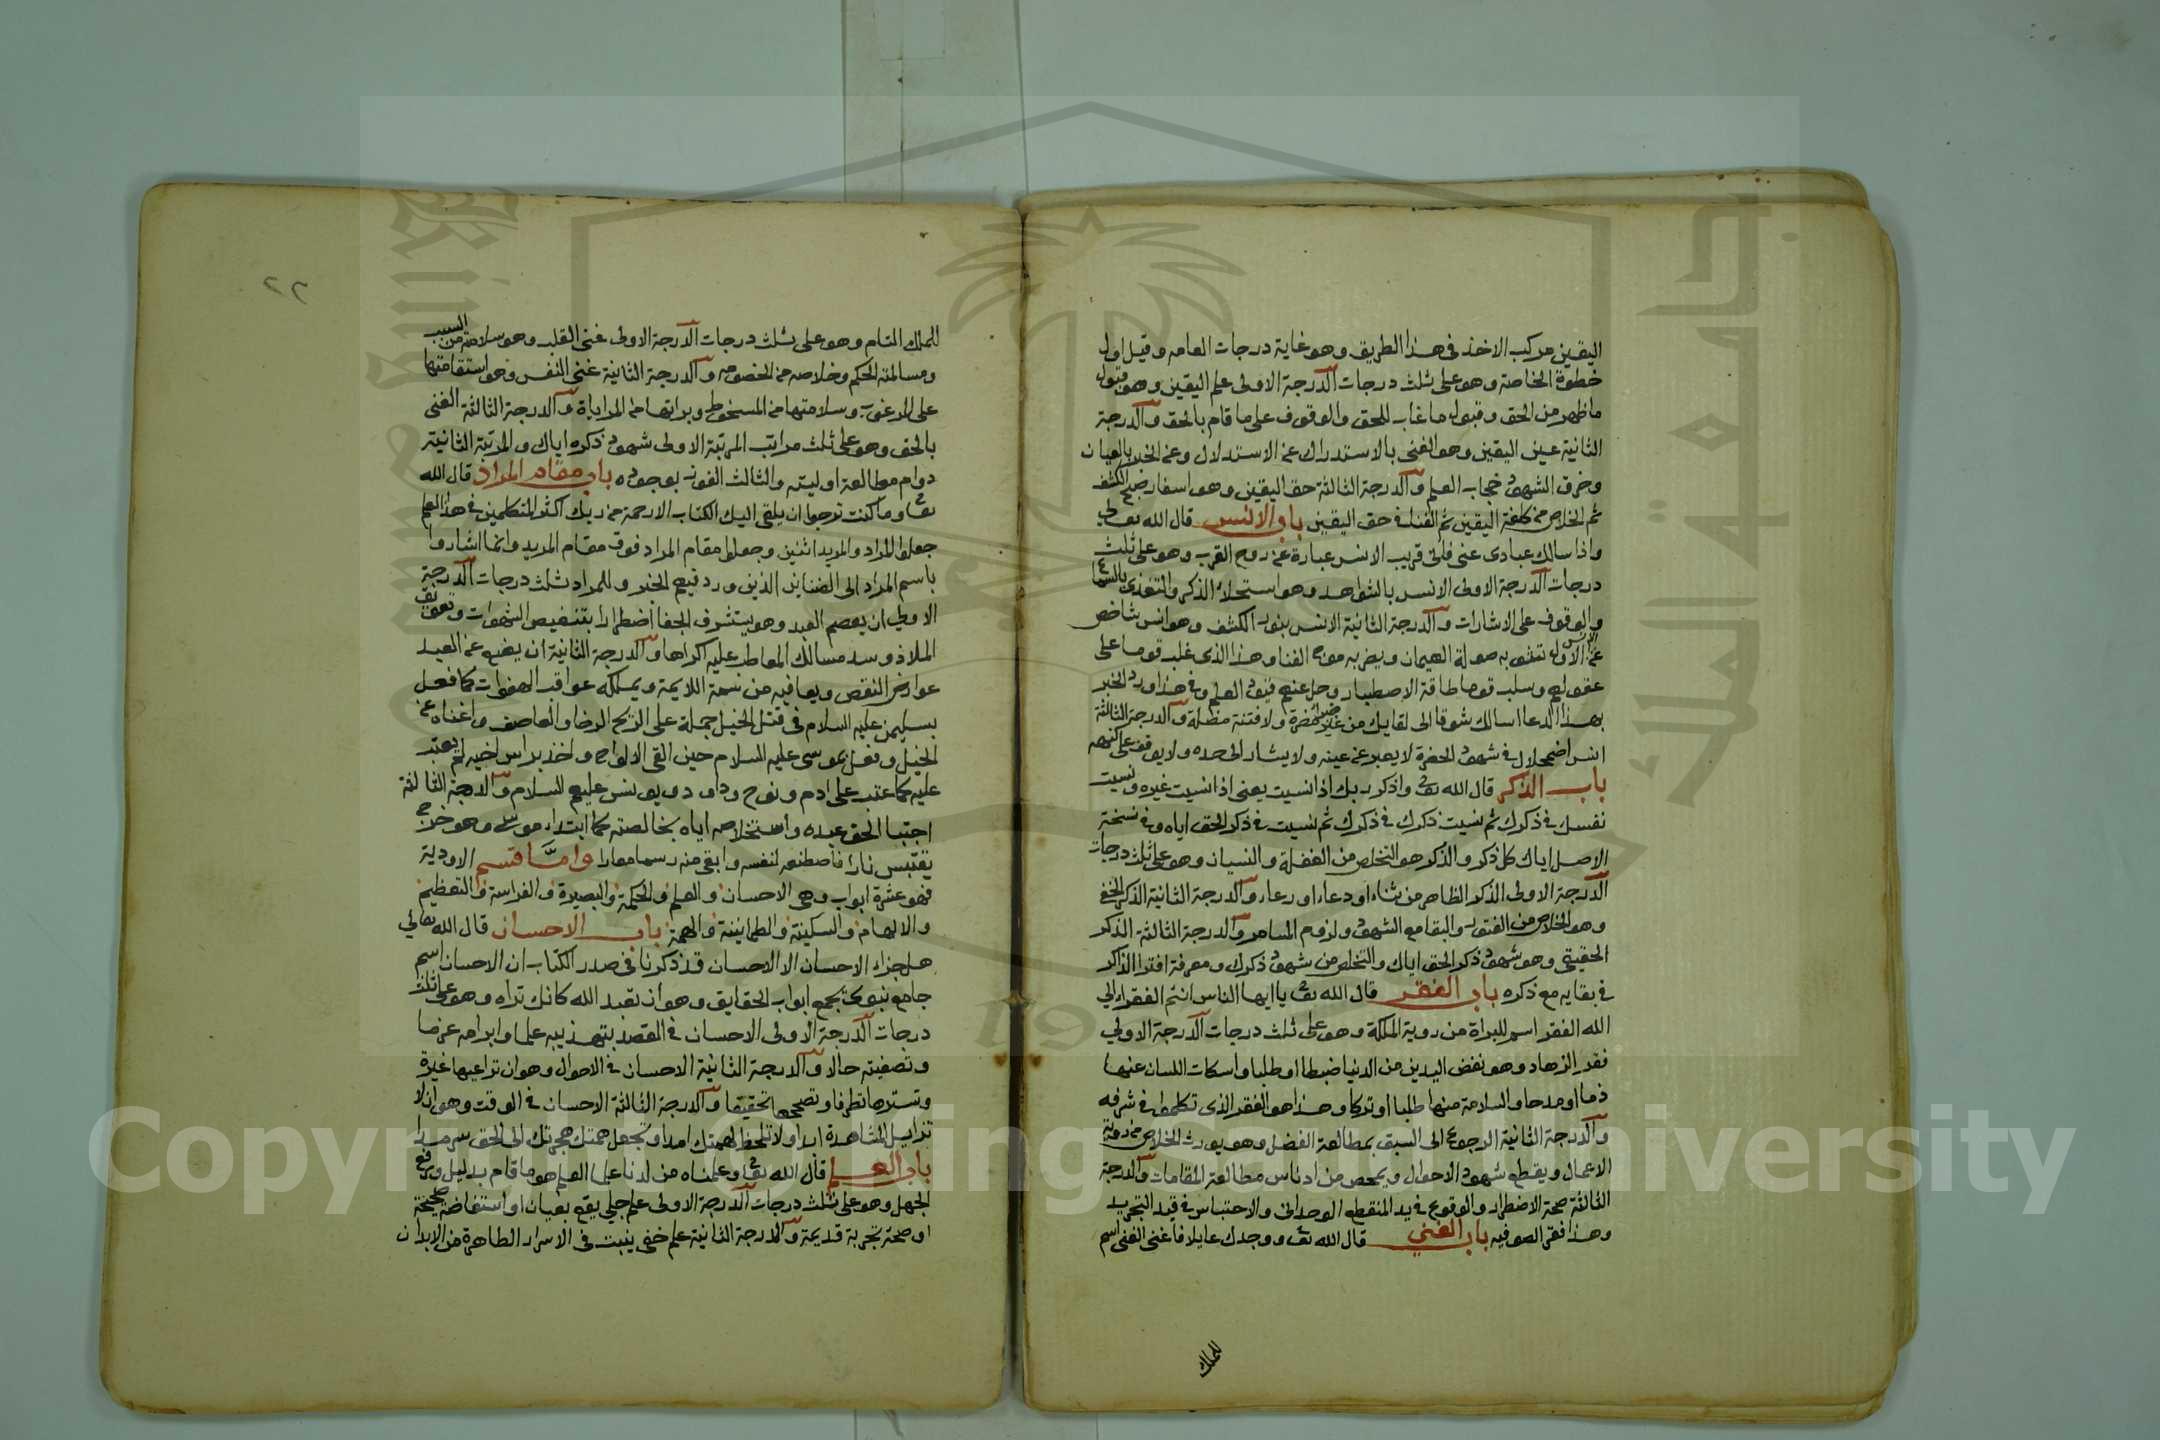 اليقين مركب الاخذ في هذا الطريق وهو غاية درجات العامه وقيل اول
خطوة الخاصة وهو على ثلث درجات الدرجة الاولى علم اليقين وهو قبول
ما ظهر من الحق وقبول ما غاب للحق والوقوف على ما قام بالحق والدرجة
الثانية عين اليقين وهو الغنى بالاستدراك عن الاستدلال وعن الخبر بالعيان
وخرق الشهود حجاب العلم والدرجة الثالثة حق اليقين وهو اسفار صبح الكشف
ثم الخلاص من كلفة اليقين ثم الفنا في حق اليقين باب الانس قال الله تعالى
واذا سالك عبادى عنى فانى قريب الانس عبارة عن روح القرب وهو على ثلث
درجات الدرجة الاولى الانس بالشواهد وهو استحلاء الذكر والتغذى بالسماع
والوقوف على الاشارات والدرجة الثانية الانس بنور الكشف وهو انس شاخص
عن الانس الاول تشوبه صولة الهيمان ويضربه موج الفنا وهذا الذى غلب قوما على
عقولهم وسلب قوما طاقة الاصطبار وحل عنهم قيود العلم وفي هذا ورد الخبر
بهذا الدعا اسالك شوقا الى لقايك من غير ضراء مضرة ولا فتنة مضلة والدرجة الثالثة
انس اضمحلال في شهود الحضرة لا يعبر عن عينه ولا يشار الى حده ولا يوقف على كنهه
باب الذكر قال الله تع واذكر ربك اذا نسيت يعنى اذا نسيت غيره ونسيت
نفسك في ذكرك ثم نسيت ذكرك في ذكرك ثم نسيت في ذكر الحق اياه وفي نسخة
الاصل اياك كل ذكر والذكر هو التخلص من الغفلة والنسيان وهو على ثلث درجات
الدرجة الاولى الذكر الظاهر من ثناء او دعاء او رعاء والدرجة الثانية الذكر الخفي
وهو الخلاص من الفتور والبقا مع الشهود ولزوم المسامر والدرجة الثالثة الذكر
الحقيقي وهو شهود ذكر الحق اياك والتخلص من شهود ذكرك ومعرفة افترا الذاكر
في بقايه مع ذكره باب الفقر قال الله تع يا ايها الناس انتم الفقراء الي
الله الفقر اسم للبراة من روية الملكة وهو على ثلث درجات الدرجة الاولي
فقر الزهاد وهو نفض اليدين من الدنيا ضبطا او طلبا واسكات اللسان عنها
ذما او مدحا والسلامة منها طلبا او تركا وهذا هو الفقر الذى تكلموا في شرفه
والدرجة الثانية الرجوع الى السبق بمطالعة الفضل وهو يورث الخلاص من روية
الاعمال ويقطع شهود الاحوال ويمحص من ادناس مطالعة المقامات والدرجة
الثالثة صحة الاضطرار والوقوع في يد المنقطع الوحدانى والاحتباس في قيد التجريد
وهذا فقر الصوفيه باب الغني قال الله تع ووجدك عايلا فاغنى الغنى اسم
للملك
٢٢
للملك التام وهو على ثلث درجات الدرجة الاولى غنى القلب وهو سلامته من السبب
ومسالمته الحكم وخلاصه من الخصومه والدرجة الثانية غنى النفس وهو استقامتها
على المرغوب وسلامتها من المسخوط وبراتها من المراياة والدرجة الثالثة الغنى
بالحق وهو على ثلث مراتب المرتبة الاولى شهود ذكره اياك والمرتبة الثانية
دوام مطالعة اوليته والثالث الفوز بوجوده باب مقام المراد قال الله
تع وما كنت ترجوا ان يلقى اليك الكتاب الا رحمة من ربك اكثر المتكلمين في هذا العلم
جعلوا المراد والمريد اثنين وجعلوا مقام المراد فوق مقام المريد وانما اشاروا
باسم المراد الى الضناين الذين ورد فيهم الخبر وللمراد ثلث درجات الدرجة
الاولي ان يعصم العبد وهو يستشرف الجفا اضطرارا بتنغيص الشهوات وتعويق
الملاذ وسد مسالك المعاطب عليه اكراها والدرجة الثانية ان يضع عن العبد
عوارض النقص ويعافيه من سمة اللايمة ويملكه عواقب الهفوات كما فعل
بسليمن عليه السلام في قتل الخيل حمله على الريح الرخا والعاصف واغناه عن
الخيل وفعل بموسى عليه السلام حين القى الالواح واخذ براس اخيه لم يعتب
عليه كما عتب على ادم ونوح وداود ويونس عليهم السلام والدرجة الثالثة
اجتبا الحق عبده واستخلاصه اياه بخالصته كما ابتدا موسى وهو خرج
يقتبس نارا فاصطنعه لنفسه وابقى منه رسما معارا واما قسم الاودية
فهو عشرة ابواب وهى الاحسان والعلم والحكمة والبصيرة والفراسة والتعظيم
والالهام والسكينة والطمانينة والهمة باب الاحسان قال الله تعالي
هل جزاء الاحسان الا الاحسان قد ذكرنا في صدر الكتاب ان الاحسان اسم
جامع نبوى يجمع ابواب الحقايق وهو ان تعبد الله كانك تراه وهو على ثلث
درجات الدرجة الاولى الاحسان في القصد بتهذيبه علما وابرامه عزما
وتصفيته حالا والدرجة الثانية الاحسان في الاحوال وهو ان تراعيها غيرة
وتسترها تظرفا وتصححها تحقيقا والدرجة الثالثة الاحسان في الوقت وهو ان لا
تزايل المشاهدة ابدا ولا تلحظ لهمتك امدا وتجعل هجرتك الى الحق سرمدا
باب العلم قال الله تع وعلمناه من لدنا علما العلم هو ما قام بدليل ورفع
الجهل وهو على ثلث درجات الدرجة الاولى علم جلي يقع بعيان او استفاضة صحيحة
او صحة تجربة قديمة والدرجة الثانية علم خفى ينبت في الاسرار الطاهرة من الابدان
جامعة الملك سعود
1957
Copyright © King Saud University